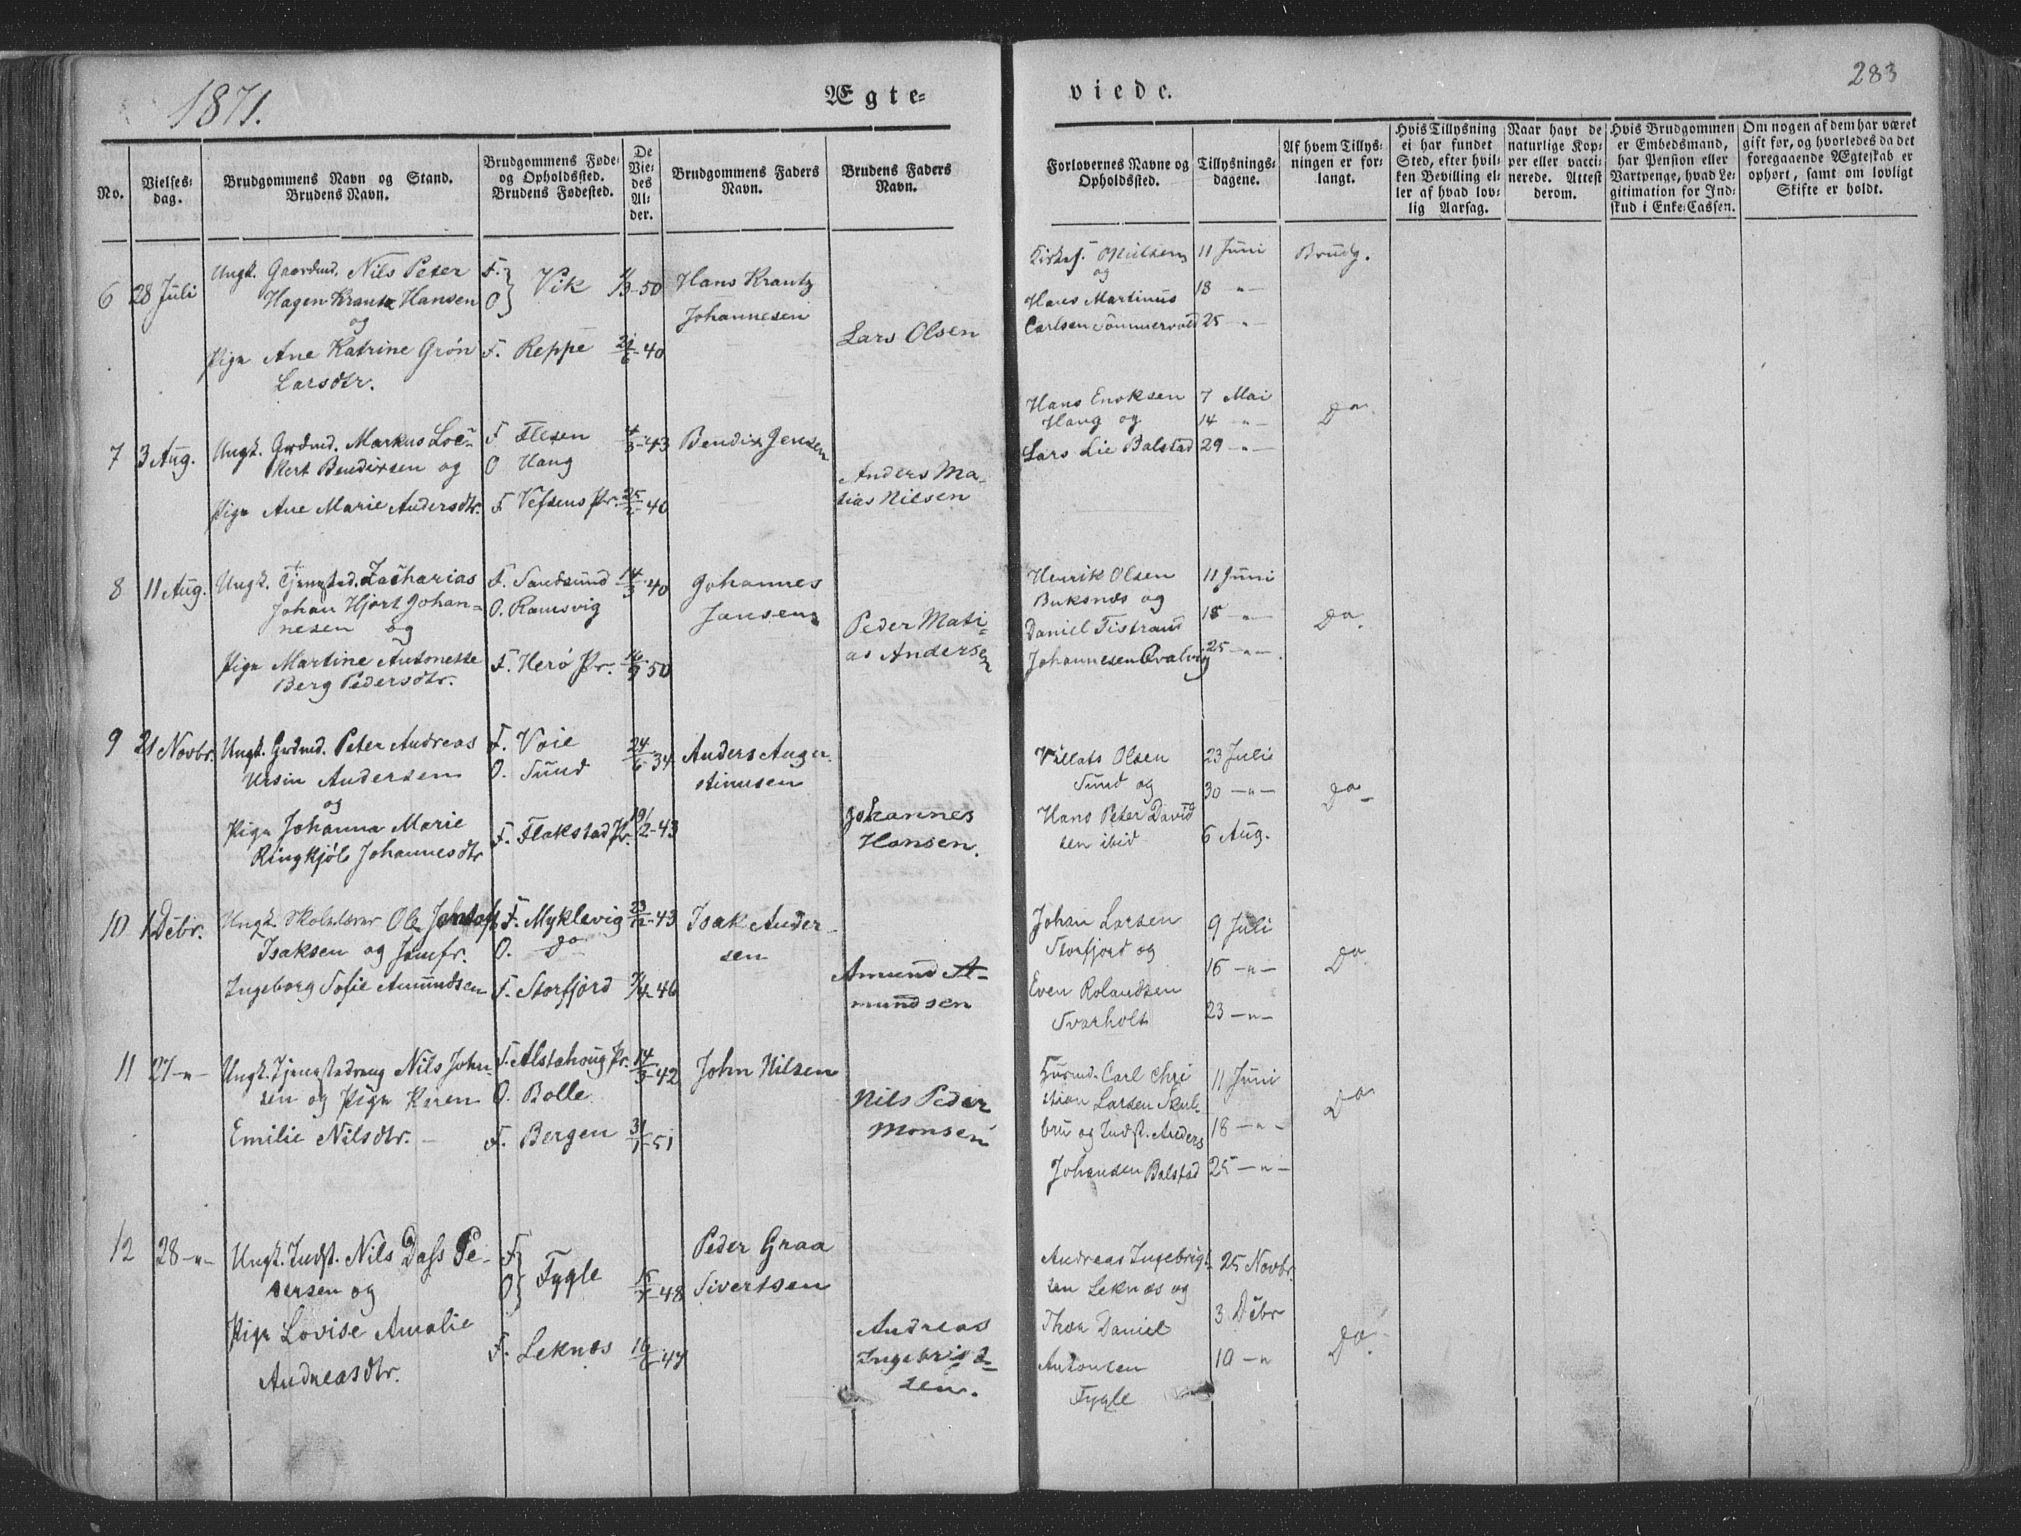 1871.
Ægte-
viede.
283
No.
Vielses-
dag.
Brudgommens Navn og Stand.
Brudens Navn.
Brudgommens Føde-
og Opholdssted.
Brudens Fødested.
De
Vie-
des
Al-
der.
Brudgommens Faders
Navn.
Brudens Faders
Navn.
Forlovernes Navne og
Opholdssted.
Tillysnings-
dagene.
Af hvem Tillys-
ningen er for-
langt.
Hvis Tillysning
ei har fundet
Sted, efter hvil-
ken Bevilling el-
ler af hvad lov-
lig Aarsag.
Naar havt de
naturlige Kop-
per eller vacci-
nerede. Attest
derom.
Hvis Brudgommen
er Embedsmand,
har Pension eller
Vartpenge, hvad Le-
gitimation for Ind-
skud i Enke-Cassen.
Om nogen af dem har været
gift før, og hvorledes da det
foregaaende Ægteskab er
ophørt, samt om lovligt
Skifte er holdt.
6 28 Juli
Ungk. Gaardmd. Nils Peter
Hagen Krantz Hansen
og
Pige Ane Katrine Grøn
Larsdtr.
F.
O } Vik
F. Reppe
50
21/6 40
Hans Krantz
Johannesen
Lars Olsen
Nilsen
og
Hans Martinus
Carlsen Sommervold
11 Juni
18 -"-
25 -"-
Brudg.
7 3 Aug.
Ungk. Grdmd. Markus Loc-
kert Bendixsen og
Pige Ane Marie Andersdtr.
F Flesen
O Haug
F Vefsens Pr.
43
40
Bendix Jensen
Anders Ma-
tias Nilsen
Hans Enoksen
Haug og
Lars Lie Balstad
7 Mai
14 -"-
29 -"-
Do.
8 11 Aug.
Ungk. Zacharias
Johan Hjort Johan-
nesen og
Pige Martine Antonette
Berg Pedersdtr.
F. Sandsund
O. Ramsvig
F. Herø Pr.
14/3 40
16/9 50
Johannes
Jansen
Peder Mati-
as Andersen
Henrik Olsen
Buksnæs og
Daniel Tistrand
Johannesen
11 Juni
18 -"-
25 -"-
Do.
9 21 Novbr.
Ungk. Grdmd. Peter Andreas
Ursin Andersen
og
Pige Johanna Marie
Ringkjøb Johannesdtr
F. Voie
O. Sund
F. Flakstad Pr.
24/6 34
19/2-43
Anders Augu-
stinusen
Johannes
Hansen.
Villats Olsen
Sund og
Hans Peter David
sen ibid
23 Juli
30 -"-
6 Aug.
Do-
10 1 Debr.
Ungk. Skolelærer Ole
Isaksen og Jomfr.
Ingeborg Sofie Amundsen
F. Myklevig
O. do
F. Storfjord
23/12-43
46
Isak Ander-
sen
Amund A-
mundsen
Johan Larsen
Storfjord og
Even Rolandsen
Svarholt
9 Juli
16 -"-
23 -"-
Do
11 27 -"-
Ungk. Tjenestedreng Nils John-
sen og Pige Karen
Emilie Nilsdtr. -
F. Alstahoug Pr.
O. Bolle
F. Bergen
14/3 42
31/1-51
John Nilsen
Nils Peder
Monsen
Husmd. Carl Chri
stian Larsen Skul-
bru og Indst. Anders
Johansen Balstad
11 Juni
18 -"-
25 -"-
Do
12 28 -"-
Ungk. Indst. Nils Dass Pe-
dersen og
Pige Lovise Amalie
Andreasdtr.
F
O } Fygle
F. Leknæs
48
16/6-47
Peder Graa
Sivertsen
Andreas
Ingebrigt-
sen.
Andreas Ingebrigt-
sen Leknæs og
Thor Daniel
Antonsen
Fygle
25 Novbr.
3 Debr
10 -"
Do-